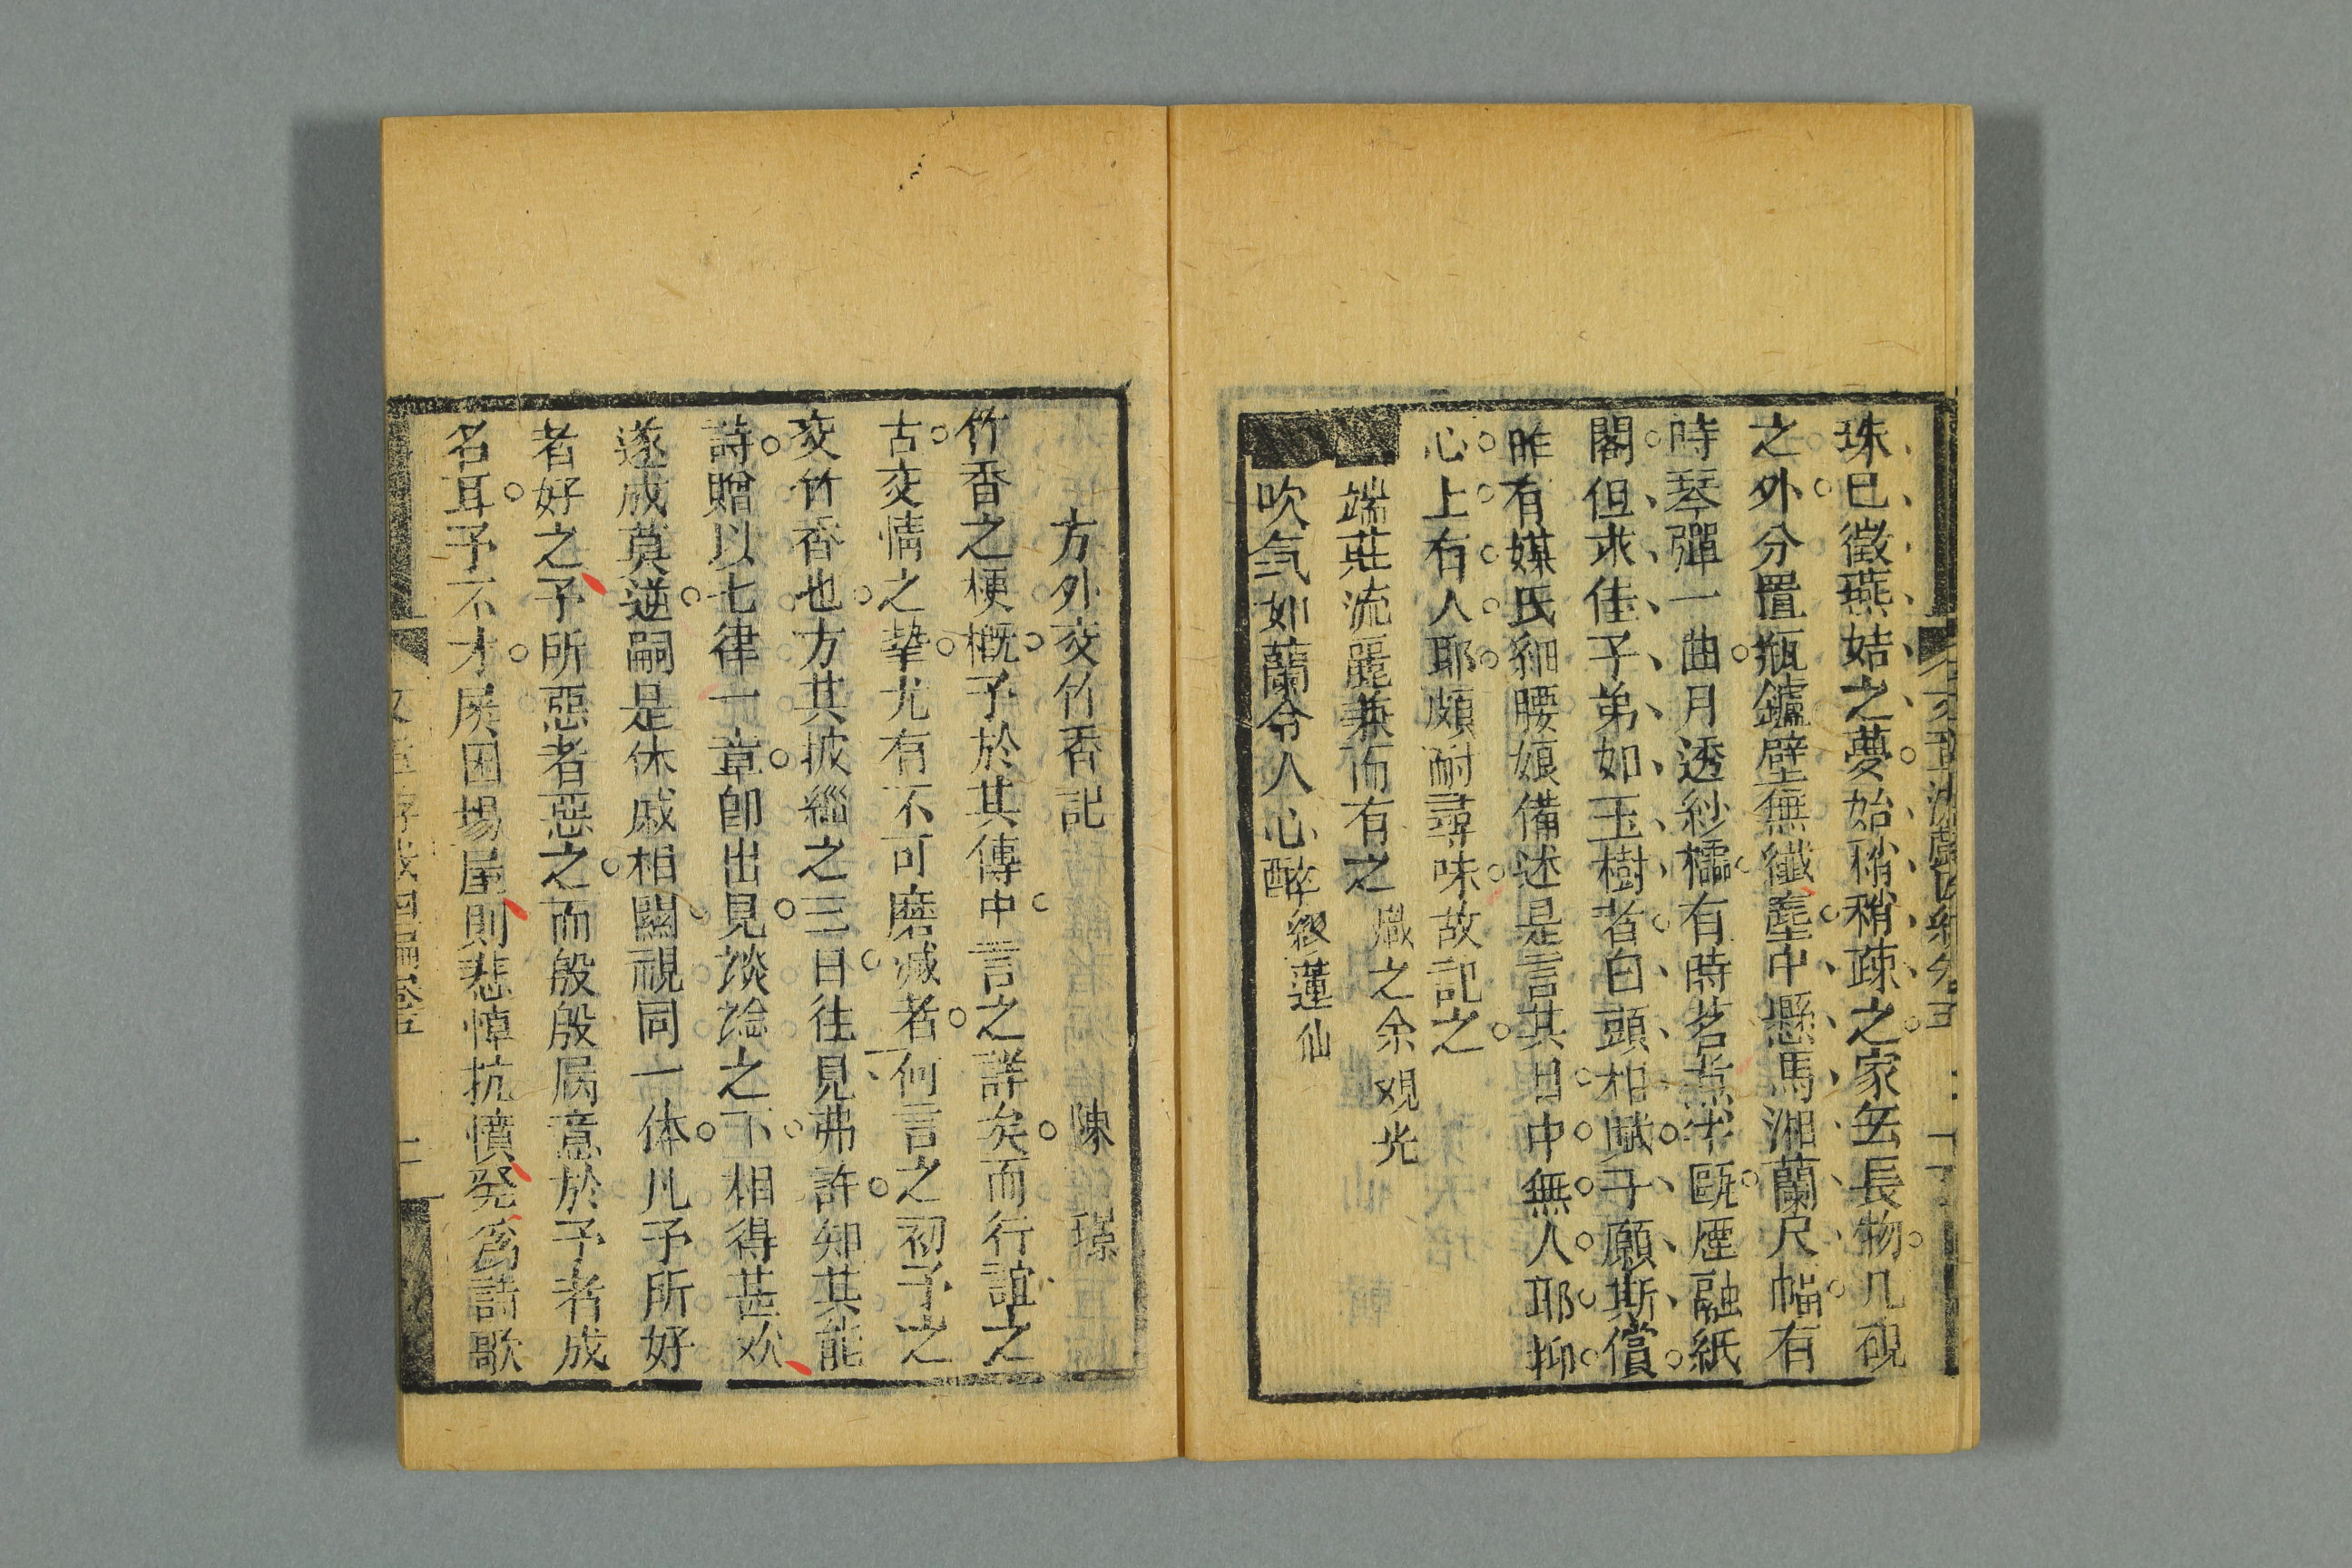 珠已徵燕姞之夢始稍稍疎之家無長物几硯
之外分置瓶鑪壁無纖塵中懸馬湘蘭尺幅有
時琴彈一曲月透紗櫺有時茗煮半甌煙融紙
閣但求佳子弟如玉樹者白頭相賦予願斯償
昨有媒氏細腰娘備述是言其目中無人耶抑
心上有人耶頗耐尋味故記之
端莊流麗兼而有之
之余观光
吹気如蘭令人心醉
蓮仙
方外交竹香記
陳
璟
竹香之梗概予於其傳中言之詳矣而行誼之
古交情之摯尤有不可磨滅者何言之初予之
交竹香也方其披緇之三日往見弗許知其能
詩贈以七律一章卽出見談論之下相得甚欢
遂成莫逆嗣是休戚相關視同一体凡予所好
者好之予所惡者惡之而殷殷屬意於予者成
名耳予不才屡困場屋則悲悼抗憤発爲詩歌